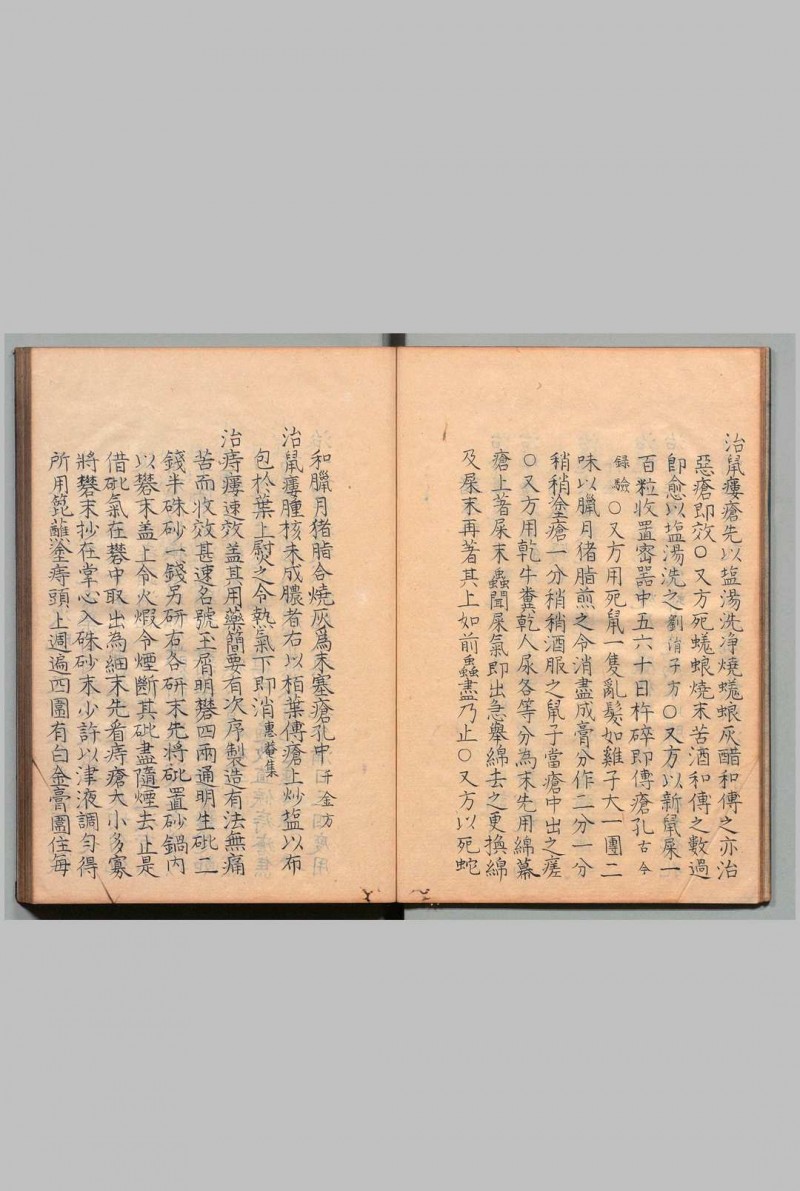 治鼠瘻瘡先以塩湯洗净燒蜣蜋灰醋和傅之亦治
惡瘡即效○又方死蜣蜋燒末苦酒和傅之數過
即愈以塩湯洗之劉涓子方○又方以新鼠屎一
百粒收置密器中五六十日杵碎即傅瘡孔古今
錄驗○又方用死鼠一隻亂髮如雞子大一團二
味以臘月猪脂煎之令消盡成膏分作二分一分
稍稍塗瘡一分稍稍酒服之鼠子當瘡中出之瘥
○又方用乾牛糞乾人屎各等分為末先用綿幕
瘡上著屎末蟲聞屎氣即出急舉綿去之更換綿
及屎末再著其上如前蟲盡乃止○又方以死蛇
和臘月猪脂合燒灰爲末塞瘡孔中千金方
治鼠瘻腫核未成膿者右以栢葉傅瘡上炒塩以布
包於葉上熨之令熱氣下即消惠菴集
治痔瘻速效盖其用藥簡要有次序製造有法無痛
苦而收效甚速名號玉屑明礬四兩通明生砒二
錢半硃砂一錢另研右各研末先將砒置砂鍋內
以礬末盖上令火煆令煙斷其砒盡隨煙去止是
借砒氣在礬中取出為細末先看痔瘡大小多寡
將礬末抄在掌心入硃砂末少許以津液調勻得
所用篦蘸塗痔頭上週遍四圍有白金膏圍住每